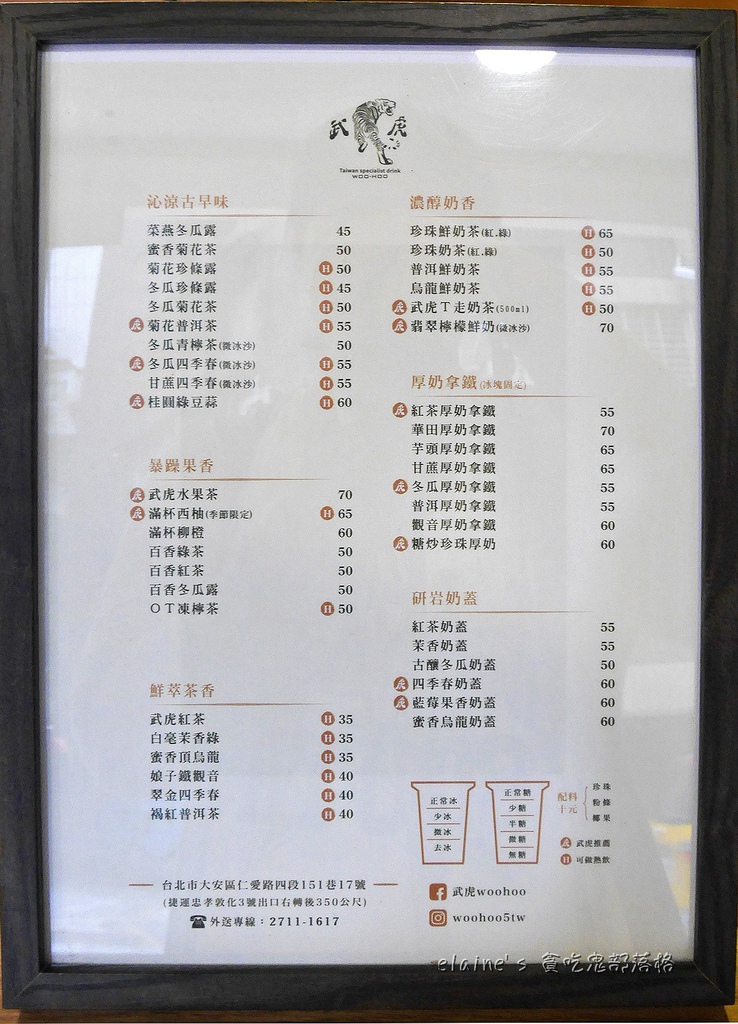 武虎
Taiwan specialist drink
WOO-HOO
沁涼古早味
菜燕冬瓜露 45
蜜香菊花茶 50
菊花珍條露 H 50
冬瓜珍條露 H 45
冬瓜菊花茶 H 50
虎 菊花普洱茶 H 55
冬瓜青檸茶(微冰沙) 50
虎 冬瓜四季春(微冰沙) H 55
甘蔗四季春(微冰沙) H 55
虎 桂圓綠豆蒜 H 60
暴躁果香
虎 武虎水果茶 70
虎 滿杯西柚(季節限定) H 65
滿杯柳橙 60
百香綠茶 50
百香紅茶 50
百香冬瓜露 50
OT凍檸茶 H 50
鮮萃茶香
武虎紅茶 H 35
白毫茉香綠 H 35
蜜香頂烏龍 H 35
娘子鐵觀音 H 40
翠金四季春 H 40
褐紅普洱茶 H 40
濃醇奶香
珍珠鮮奶茶(紅.綠) H 65
珍珠奶茶(紅.綠) H 50
普洱鮮奶茶 H 55
烏龍鮮奶茶 H 55
虎 武虎T走奶茶(500ml) H 50
虎 翡翠檸檬鮮奶(微冰沙) 70
厚奶拿鐵(冰塊固定)
虎 紅茶厚奶拿鐵 55
華田厚奶拿鐵 70
芋頭厚奶拿鐵 65
甘蔗厚奶拿鐵 65
虎 冬瓜厚奶拿鐵 55
普洱厚奶拿鐵 55
觀音厚奶拿鐵 60
虎 糖炒珍珠厚奶 60
研岩奶蓋
紅茶奶蓋 55
茉香奶蓋 55
古釀冬瓜奶蓋 50
虎 四季春奶蓋 60
虎 藍莓果香奶蓋 60
蜜香烏龍奶蓋 60
正常冰
少冰
微冰
去冰
正常糖
少糖
半糖
微糖
無糖
配料
十元
珍珠
粉條
椰果
虎 武虎推薦
H 可做熱飲
台北市大安區仁愛路四段151巷17號
(捷運忠孝敦化3號出口右轉後350公尺)
外送專線：2711-1617
武虎woohoo
woohoo5tw
elaine's 貪吃鬼部落格